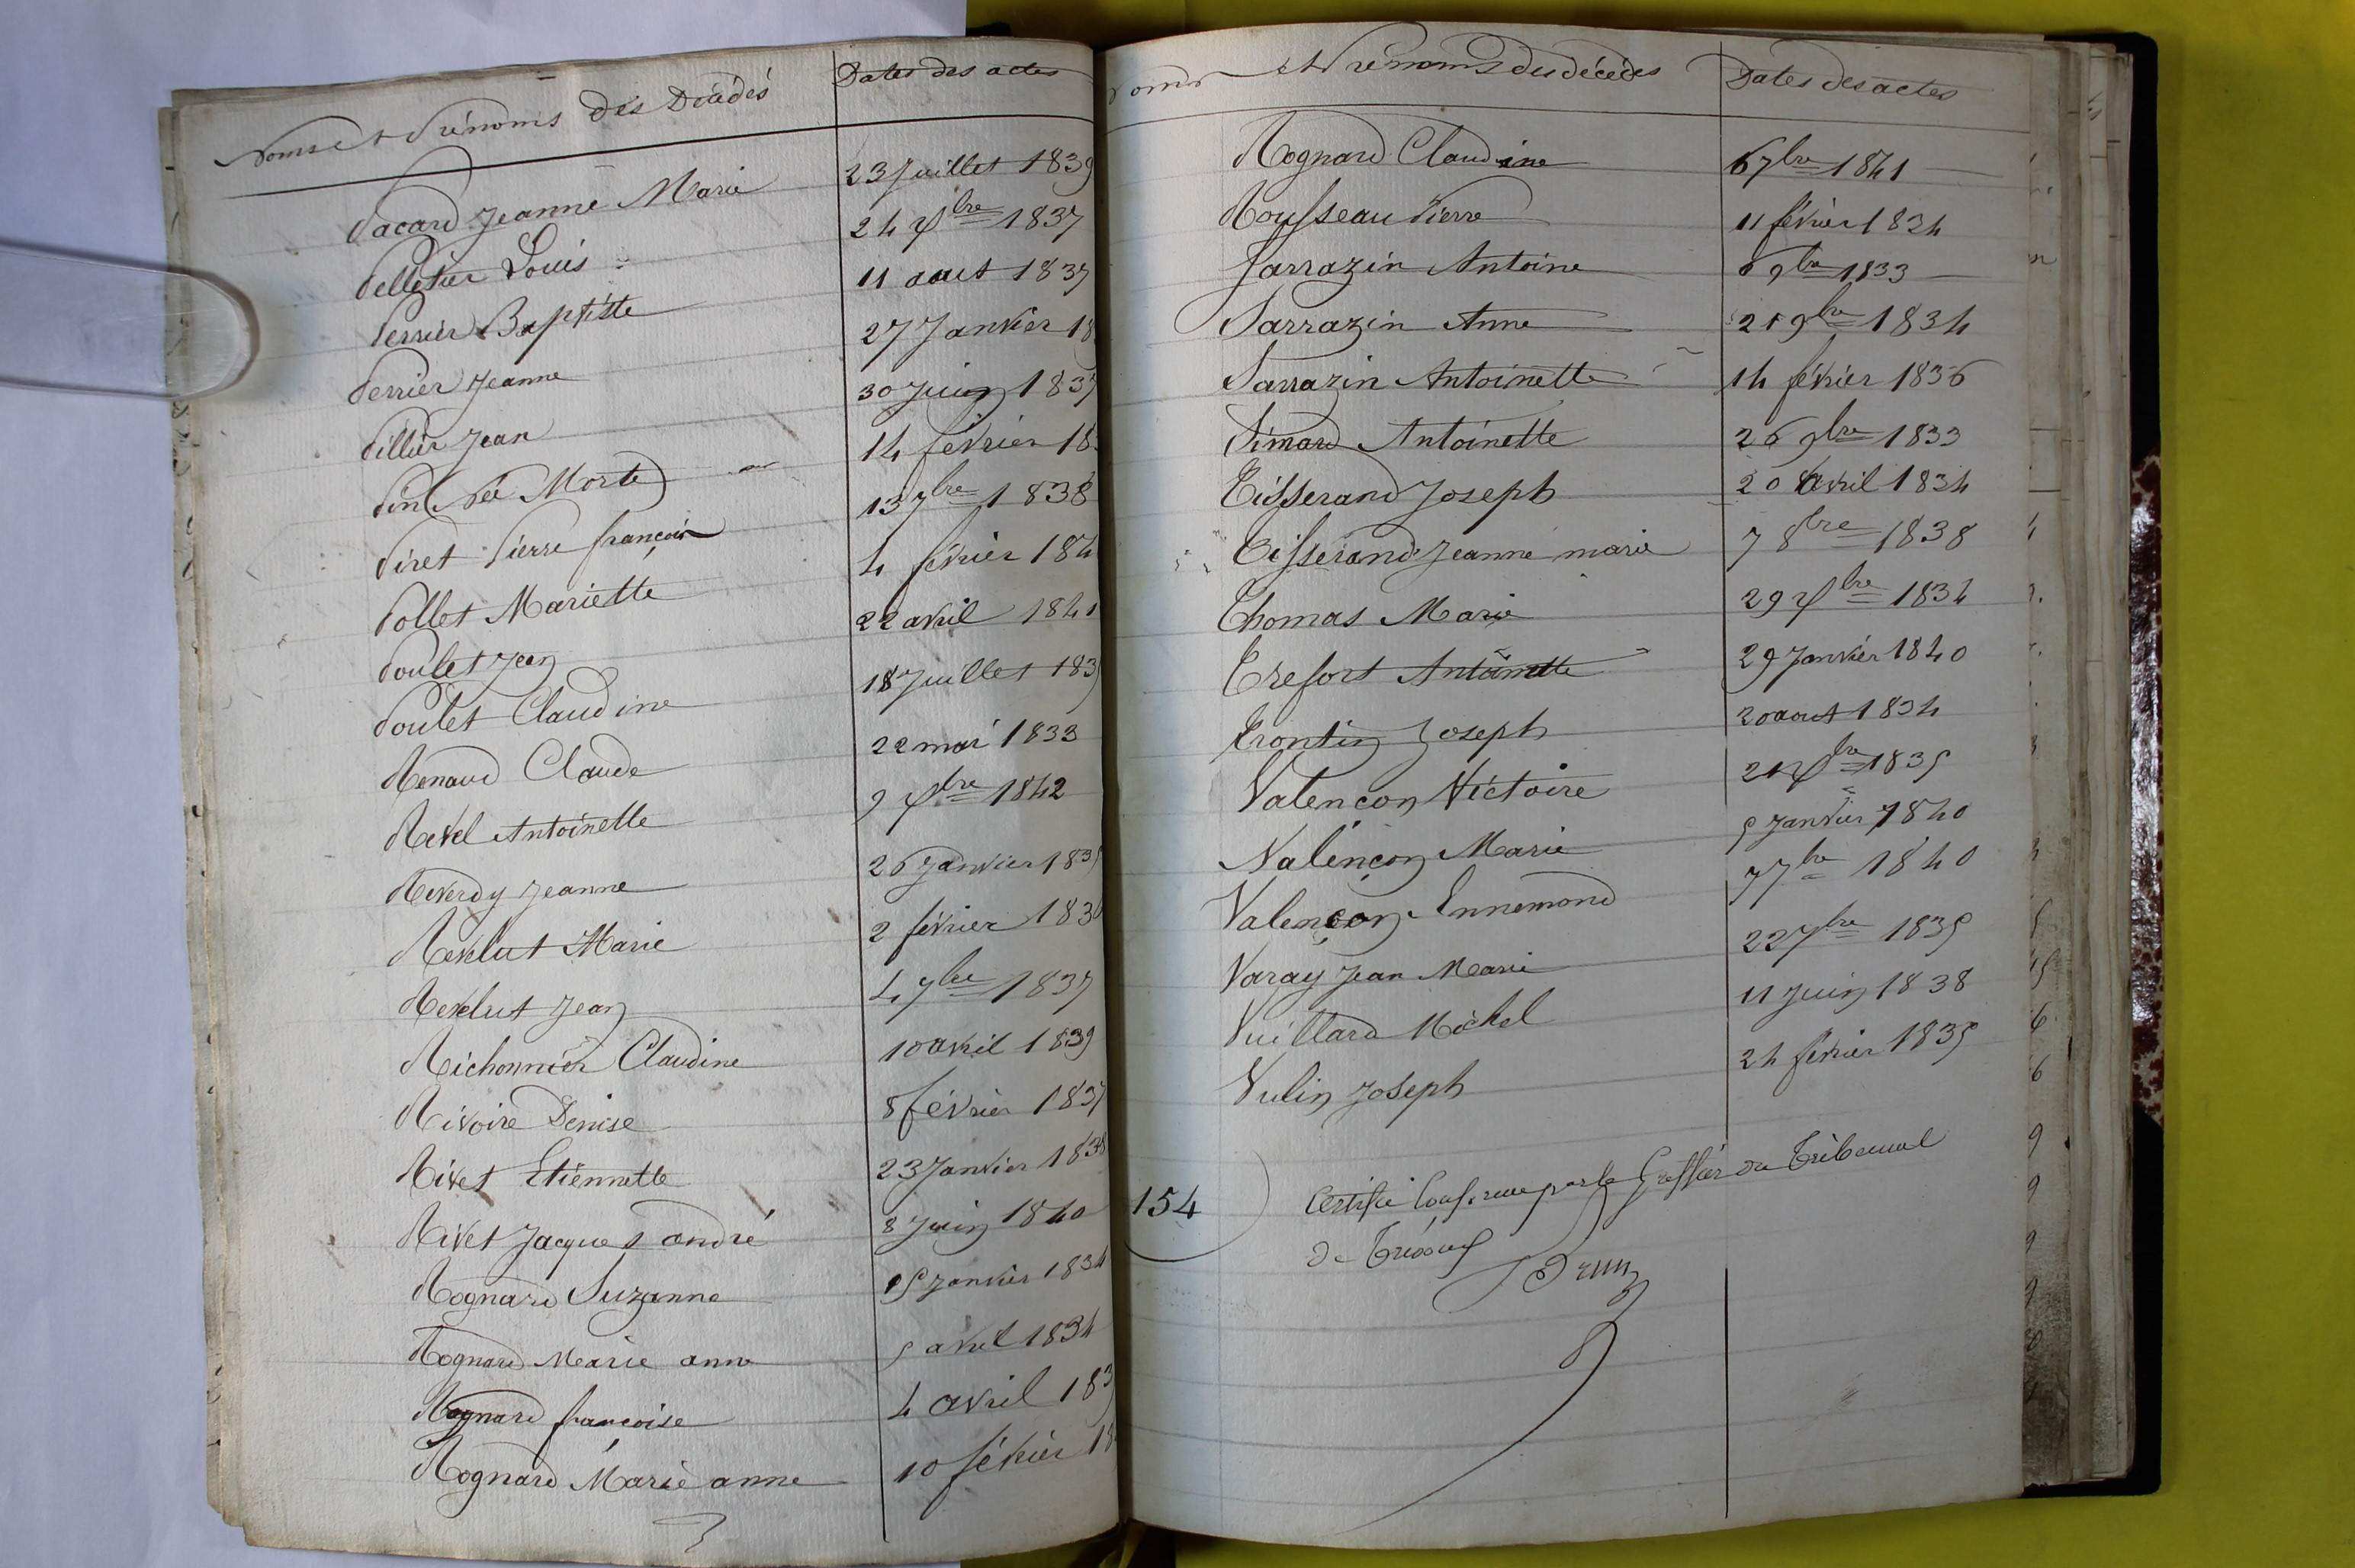 Noms et Prénoms des Décédés Dates des actes
Pacard Jeanne Marie 23 Juillet 1839
Pelletier Louis 24 xbre 1837
Perrier Baptiste 11 aout 1837
Perrier Jeanne 27 Janvier 18
Pillier Jean 30 Juin 1837
Pin Né Morte 14 février 18
Piret Pierre françois 13 7bre 1838
Pollet Mariette 4 février 184
Poulet Jean 22 avril 1841
Poulet Claudine 18 Juillet 183
Renaud Claude 22 mai 1833
Revel Antoinette 9 xbre 1842
Reverdy Jeanne 26 Janvier 1835
Revelut Marie 2 février 183
Revelut Jean 4 9bre 1837
Richonnier Claudine 10 avril 1839
Rivoire Denise 8 février 1837
Rivet Etiennette 23 Janvier 1838
Rivet Jacques andré 8 Juin 1840
Rognard Suzanne 15 Janvier 1834
Rognard Marie anne 5 avril 1834
Rognard françoise 4 avril 183
Rognard Marie anne 10 février 18
Noms et Prénoms des décédés Dates des actes
Rognard Claudine 6 7bre 1841
Rousseau Pierre 11 février 1834
Sarrazin Antoine 6 9bre 1833
Sarrazin Anne 25 9bre 1834
Sarrazin Antoinette 14 février 1836
Simard Antoinette 26 9bre 1833
Tisserand Joseph 20 avril 1834
Tisserand Jeanne marie 7 8bre 1838
Thomas Marie 29 xbre 1834
Trefort Antoinette 29 Janvier 1840
Trontin Joseph 20 aout 1834
Valençon Victoire 21 xbre 1835
Valençon Marie 5 Janvier 1840
Valençon Ennemond 7 7bre 1840
Varay Jean Marie 22 7bre 1835
Vuillard Michel 11 Juin 1838
Vulin Joseph 24 février 1835
154 Certifié Conforme par le Greffier du Tribunal
de Trévoux